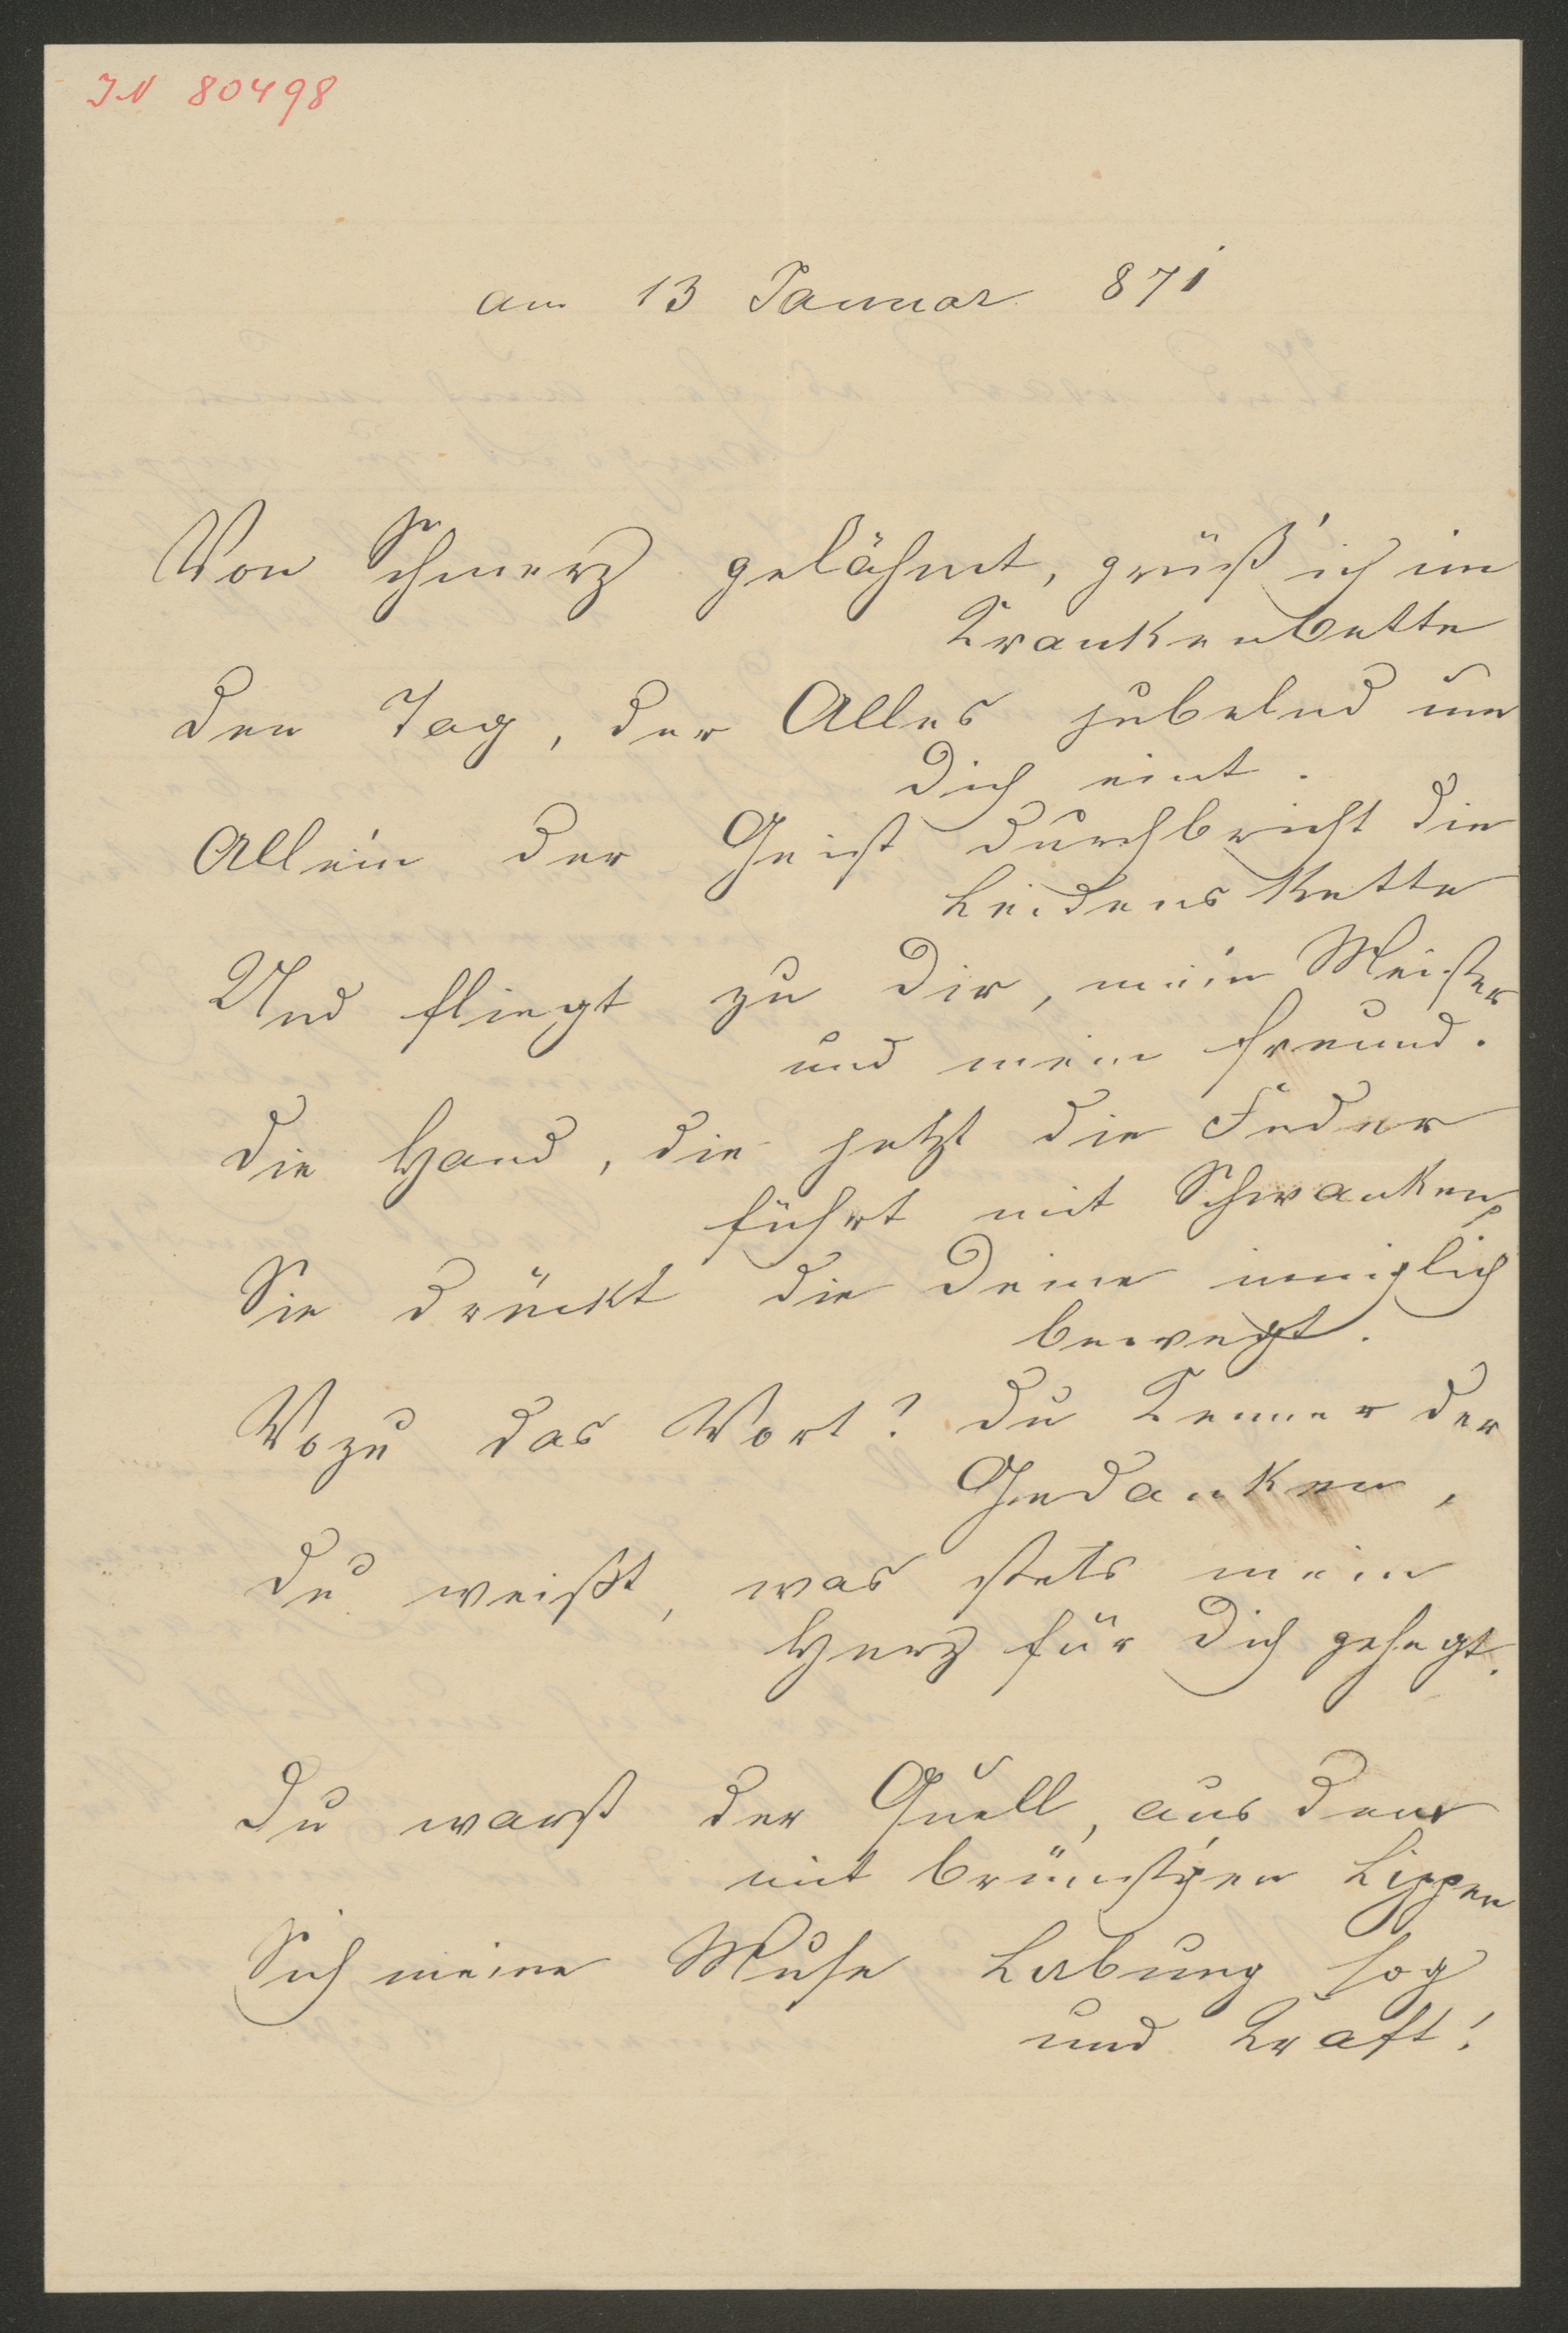 IN 80498
am 13 Januar 871
Von Schmerz gelähmt, grüß' ich im
Krankenbette
Den Tag, der Alles jubelnd um
Dich eint.
Allein der Geist durchbricht die
Leidenskette
Und fliegt zu Dir, mein Meister
und mein Freund.
Die Hand, die jetzt die Feder
führt mit Schwanken,
Sie drückt die Deine inniglich
bewegt.
Wozu das Wort? Du Kenner der
Gedanken,
Du weißt, was stets mein
Herz für Dich gehegt.
Du warst der Quell, aus dem
mit brünst'gen Lippen
Sich meine Muse Labung sog
und Kraft!